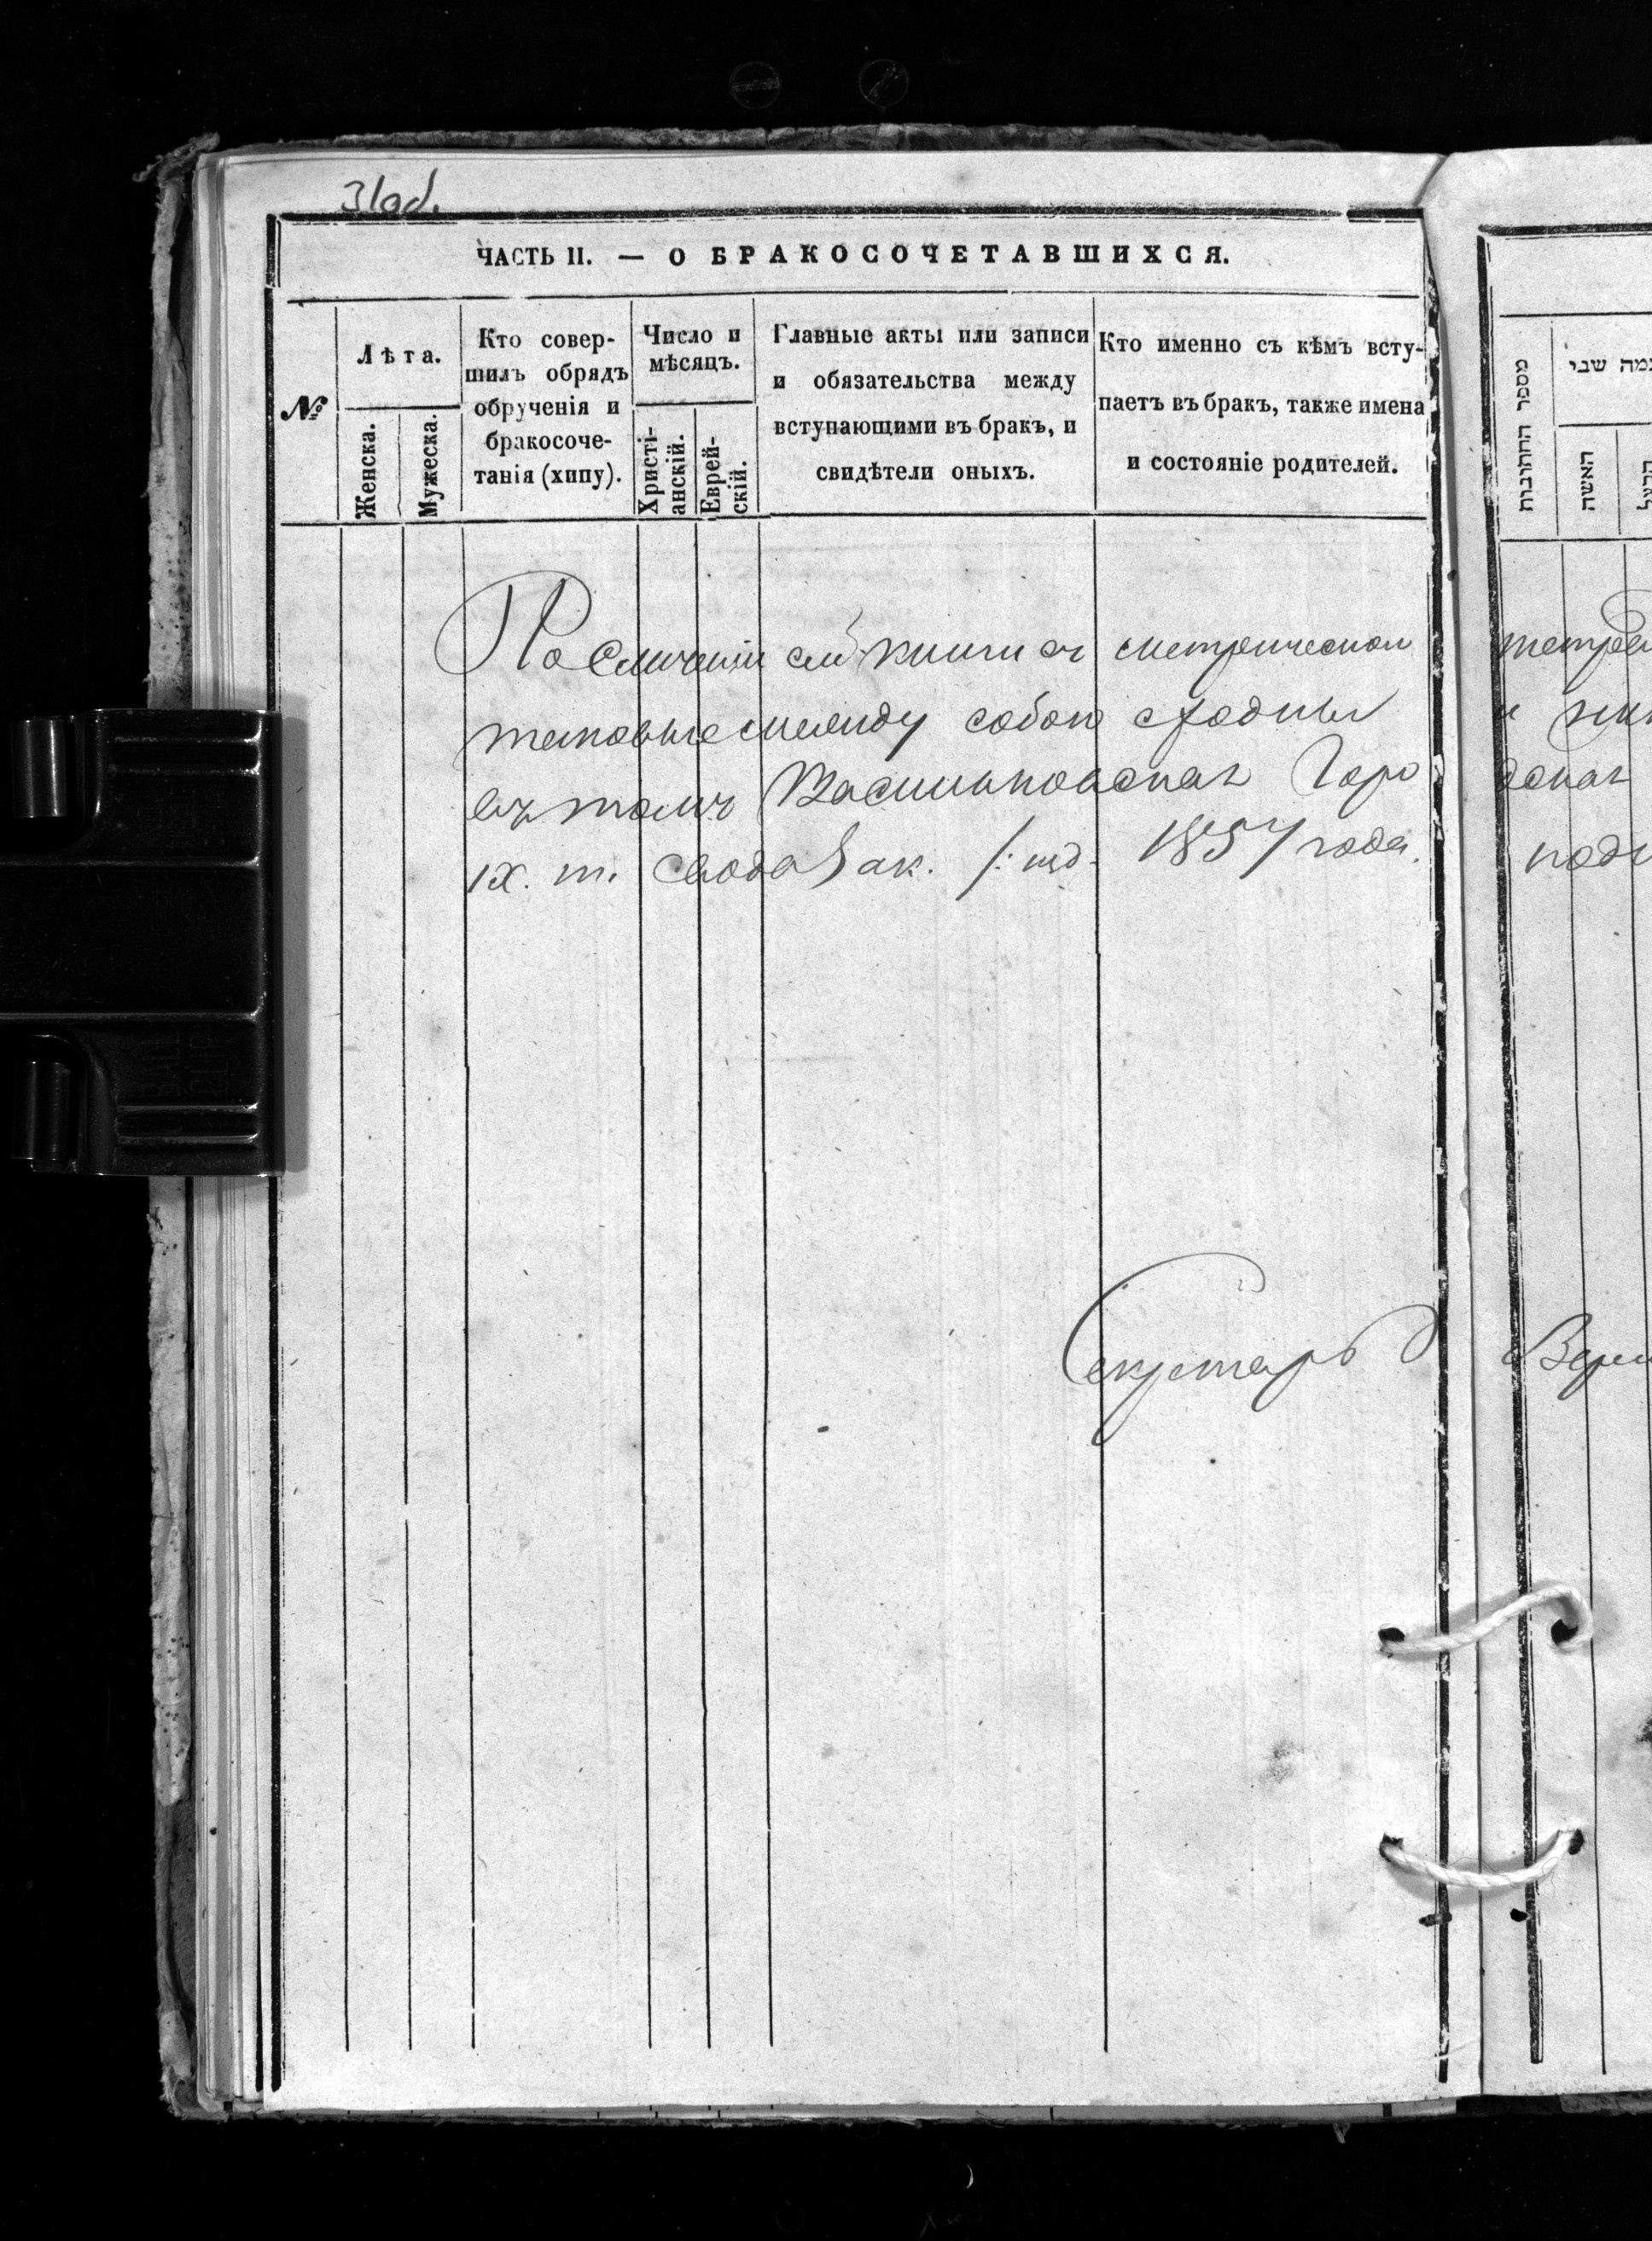 31об.
ЧАСТЬ II. — О БРАКОСОЧЕТАВШИХСЯ.
№
Лѣта.
Женска.
Мужеска.
Кто совер-
шилъ обрядъ
обрученія и
бракосоче-
танія (хипу).
Число и
мѣсяцъ.
Христі-
анскій.
Еврей-
скій.
Главные акты или записи
и обязательства между
вступающими въ бракъ, и
свидѣтели оныхъ.
Кто именно съ кѣмъ всту-
паетъ въ бракъ, также имена
и состояніе родителей.
По сличеніи сей книги съ метрической
таковые между собою сходны
въ томъ Васильковская Горо
IX. т. Свода Зак. /: изд. 1857 года.
Секретарь
מספר החתובות
האשה